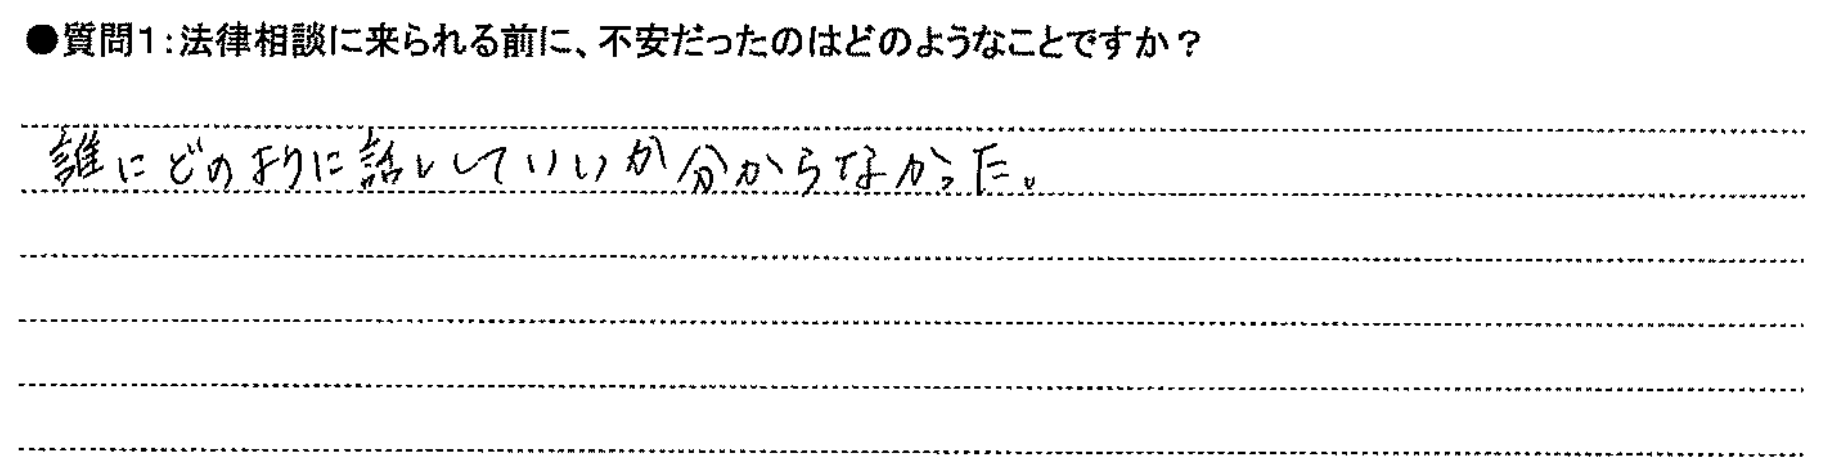 ●質問1:法律相談に来られる前に、不安だったのはどのようなことですか?
誰にどのように話しをしていいか分からなかった。